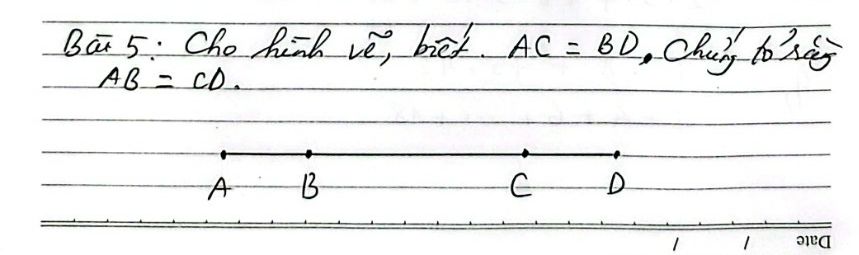 Bài 5: Cho hình vẽ, biết. AC = BD, Chứng tỏ rằng
AB = CD.
A B C D
Date / /